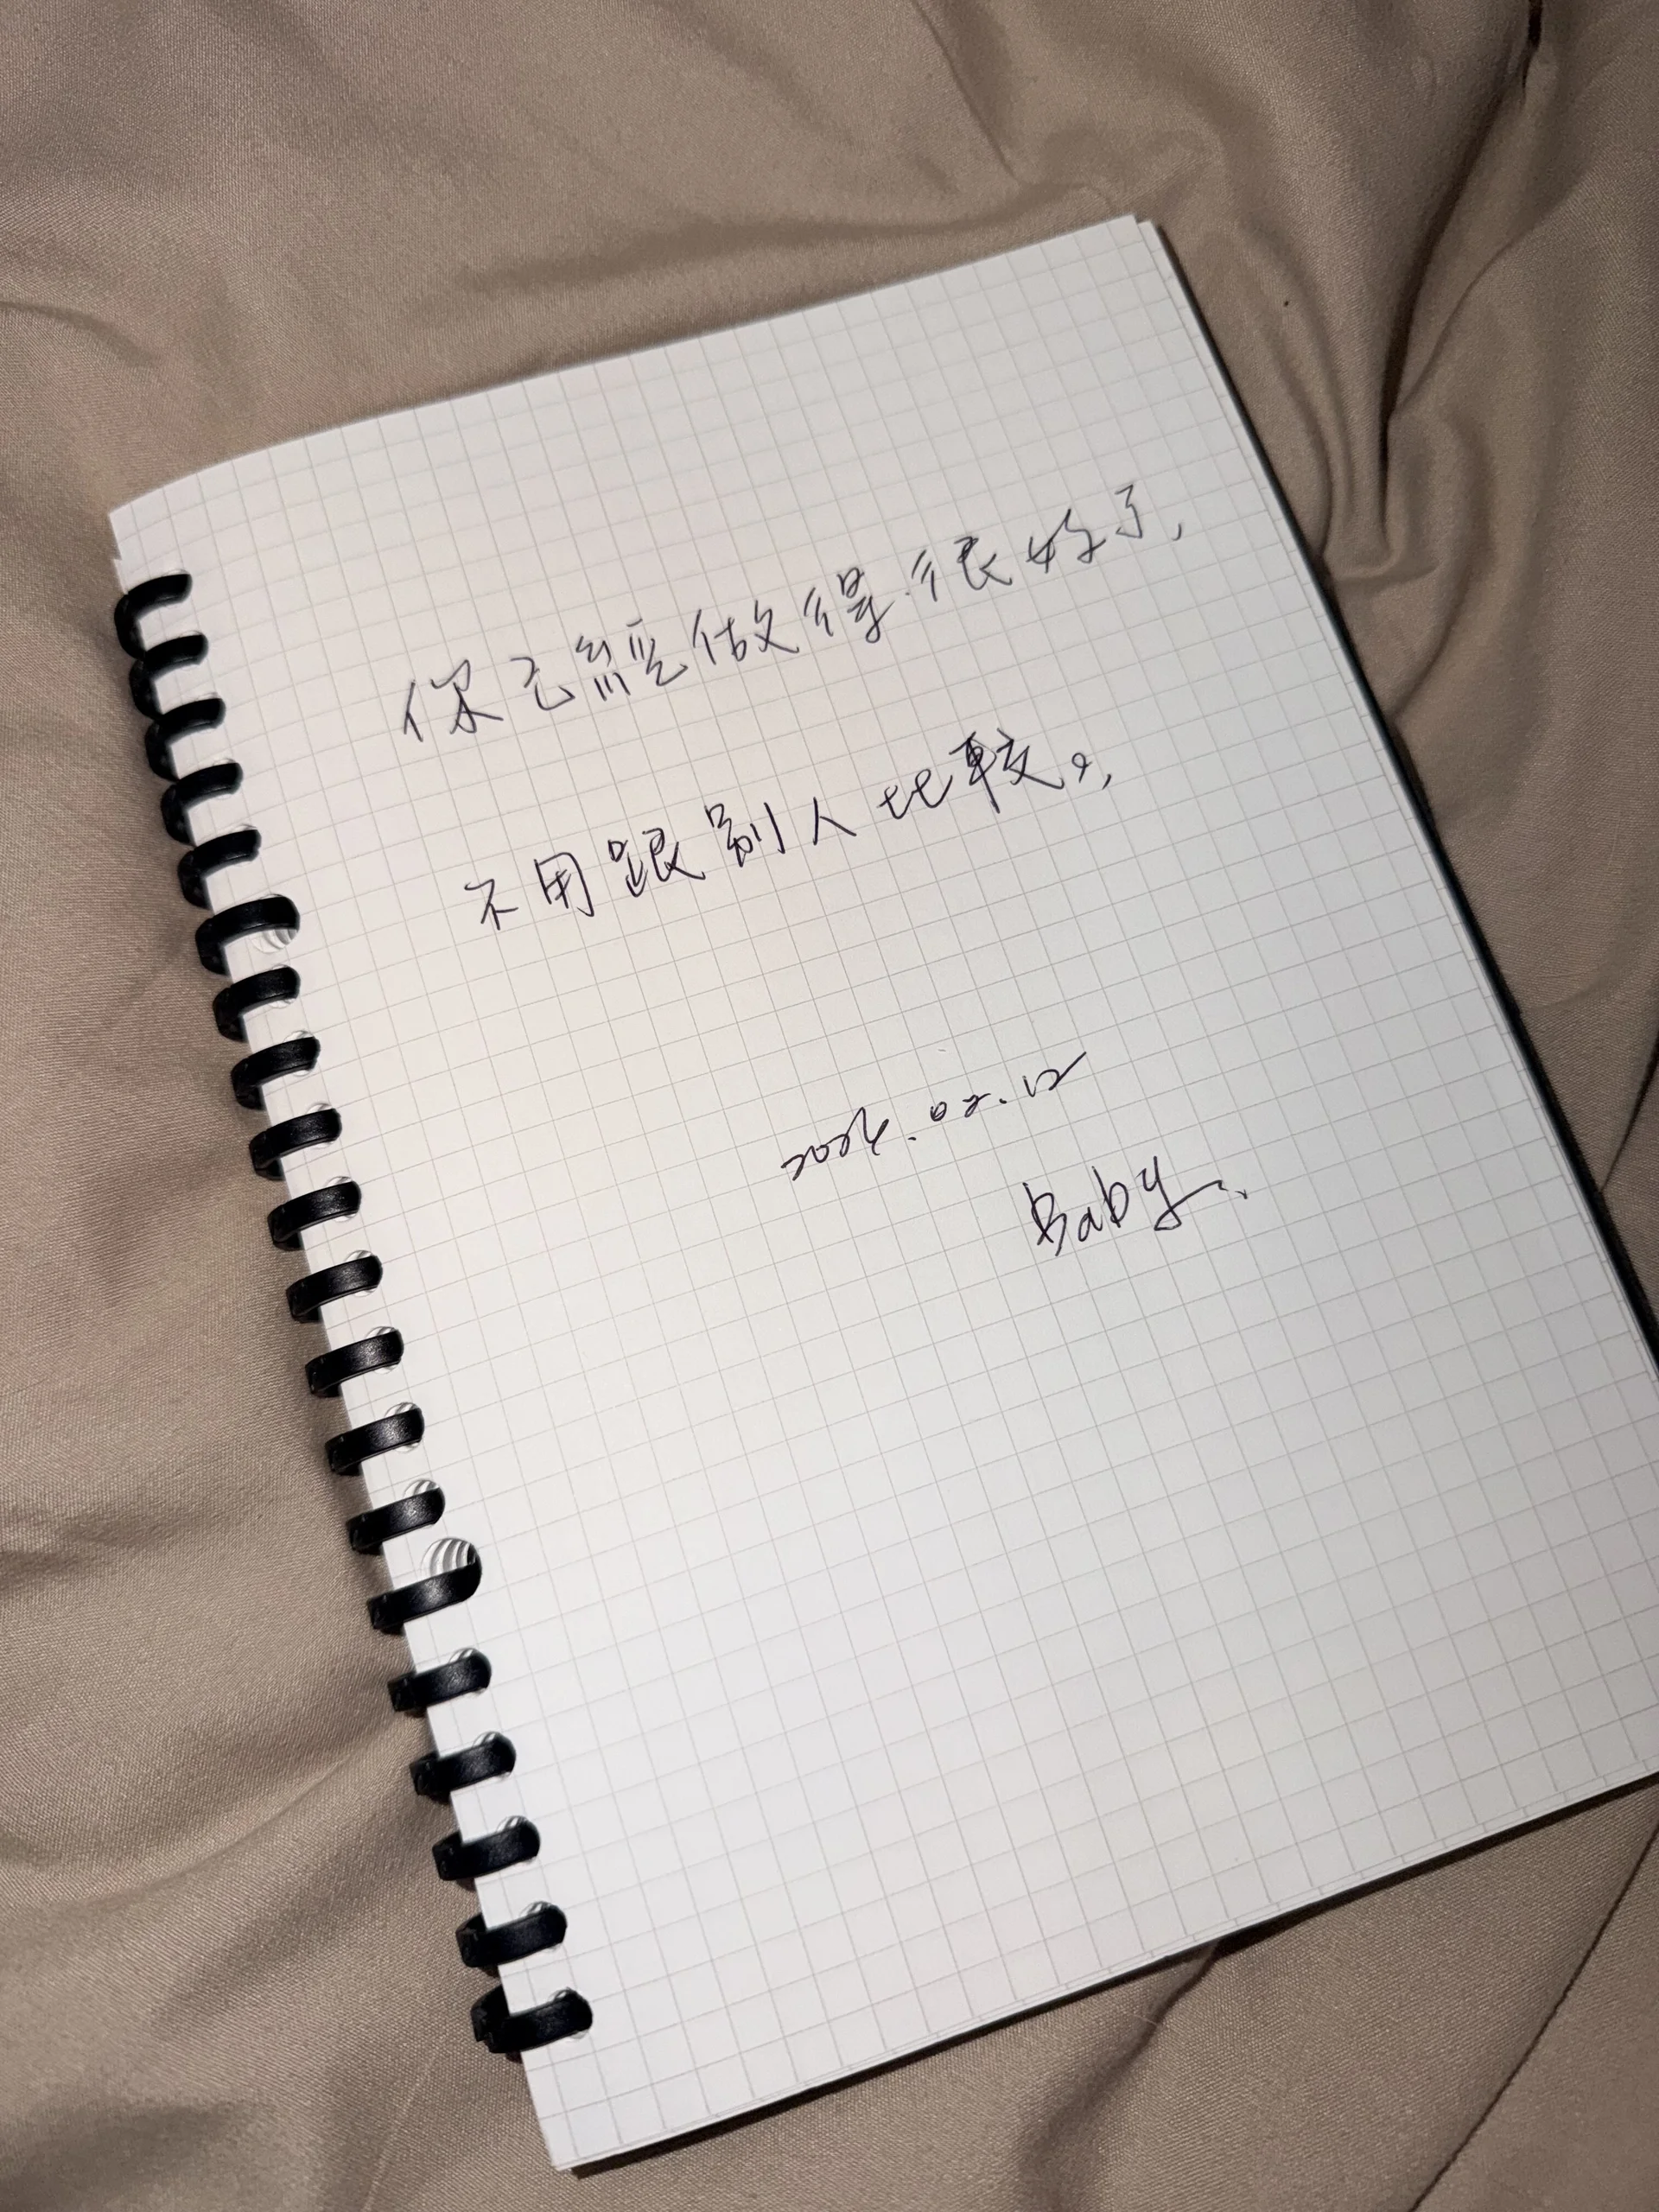 你已經做得很好了,
不用跟別人比較。
2026.02.12
Baby.